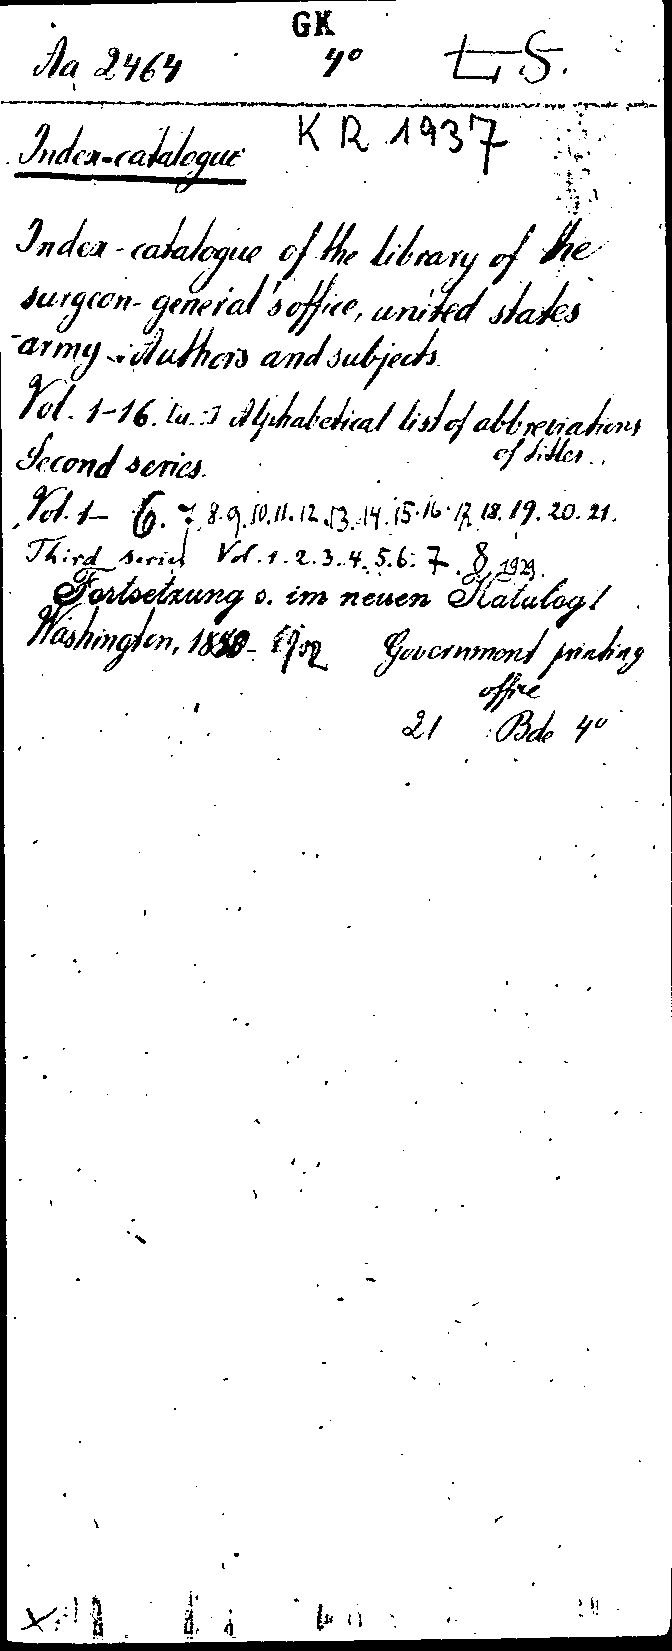 GK
Aa 2464 4° LS.
KR 1937
Index-catalogue
Index-catalogue of the library of the
surgeon-general's office, united states
army. Authors and subjects.
Vol. 1-16. [u.] Alphabetical list of abbreviations
of titles.
Second series.
Vol. 1- 6. 7. 8. 9. 10. 11. 12. 13. 14. 15. 16. 17. 18. 19. 20. 21.
Third series Vol. 1. 2. 3. 4. 5. 6. 7. 8, 1929.
Fortsetzung s. im neuen Katalog!
Washington, 1880- Government printing
office
21 Bde 4°